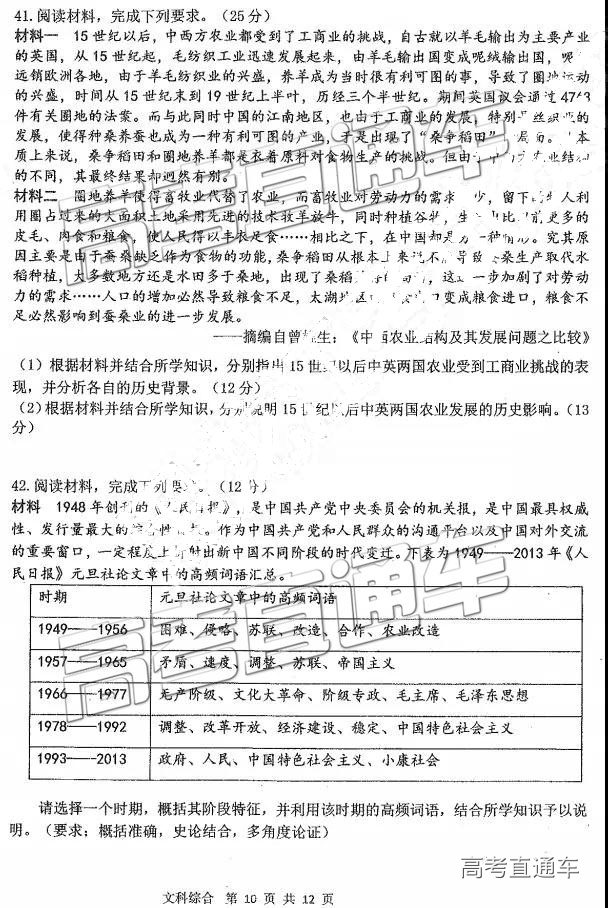 41.阅读材料，完成下列要求。（25分）
材料一 15世纪以后，中西方农业都受到了工商业的挑战，自古就以羊毛输出为主要产业
的英国，从15世纪起，毛纺织工业迅速发展起来，由羊毛输出国变成呢绒输出国，
远销欧洲各地，由于羊毛纺织业的兴盛，养羊成为当时很有利可图的事，导致了圈地运动
的兴盛，时间从15世纪末到19世纪上半叶，历经三个半世纪。期间英国议会通过4763
件有关圈地的法案。而与此同时中国的江南地区，也由于工商业的发展，特别是丝织业的
发展，使得种桑养蚕也成为一种有利可图的产业，于是出现了“桑争稻田”的局面。本
质上来说，桑争稻田和圈地养羊都是衣着原料对食物生产的挑战。但由于中西方农业结构
的不同，其最终结果却迥然有别。
材料二 圈地养羊使得畜牧业代替了农业，而畜牧业对劳动力的需求少，留下的人利
用圈占过来的大面积土地采用先进的技术牧羊放牛，同时种植谷物，生产出比以前更多的
皮毛、肉食和粮食，使人民得以丰衣足食……相比之下，在中国却是另一种情形。究其原
因主要是由于蚕桑缺乏作为食物的功能，桑争稻田从根本上来说不能导致蚕桑生产取代水
稻种植，大多数地方还是水田多于桑地，出现了桑稻的局面，这进一步加剧了对劳动
力的需求……人口的增加必然导致粮食不足，太湖地区由变成粮食进口，粮食不
足必然影响到蚕桑业的进一步发展。
——摘编自曾雄生：《中西农业结构及其发展问题之比较》
（1）根据材料并结合所学知识，分别指出15世纪以后中英两国农业受到工商业挑战的表
现，并分析各自的历史背景。（12分）
（2）根据材料并结合所学知识，分别说明15世纪以后中英两国农业发展的历史影响。（13
分）
42.阅读材料，完成下列要求。（12分）
材料 1948年创刊的《人民日报》，是中国共产党中央委员会的机关报，是中国最具权威
性、发行量最大的综合性日报。作为中国共产党和人民群众的沟通平台以及中国对外交流
的重要窗口，一定程度上折射出新中国不同阶段的时代变迁。下表为1949——2013年《人
民日报》元旦社论文章中的高频词语汇总。
时期 元旦社论文章中的高频词语
1949——1956 困难、侵略、苏联、改造、合作、农业改造
1957——1965 矛盾、速度、调整、苏联、帝国主义
1966——1977 无产阶级、文化大革命、阶级专政、毛主席、毛泽东思想
1978——1992 调整、改革开放、经济建设、稳定、中国特色社会主义
1993——2013 政府、人民、中国特色社会主义、小康社会
请选择一个时期，概括其阶段特征，并利用该时期的高频词语，结合所学知识予以说
明。（要求：概括准确，史论结合，多角度论证）
高考直通车
高考直通车
高考直通车
文科综合 第 10 页 共 12 页